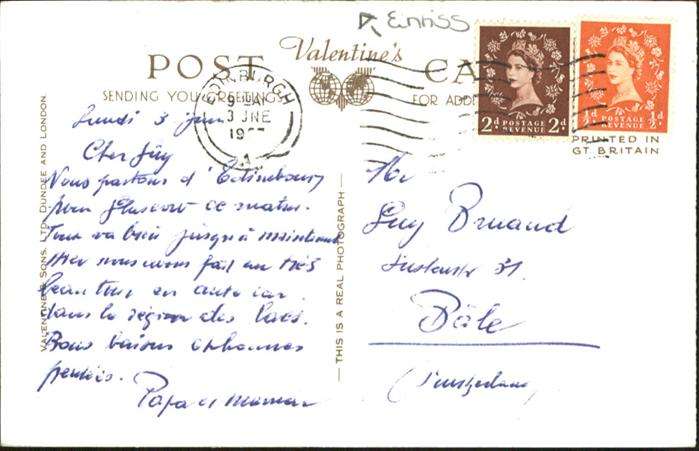 Enniss
POST Valentine's CA
SENDING YOU GREETINGS FOR ADD
EDINBURGH
9
3 JNE
2d POSTAGE REVENUE 2d
½d POSTAGE REVENUE ½d
PRINTED IN
GT BRITAIN
VALENTINE & SONS, LTD. DUNDEE AND LONDON.
THIS IS A REAL PHOTOGRAPH
Lundi 3 juin
Cher Guy
Nous partons d'Edimbourg
pour Glascow ce matin.
Tout va bien jusqu'à maintenant
Hier nous avons fait un très
beau tour en auto car
dans la région des lacs.
Bons baisers et bonnes
pensées.
Papa et maman
Mr
Guy
31.
Bâle
(Switzerland)